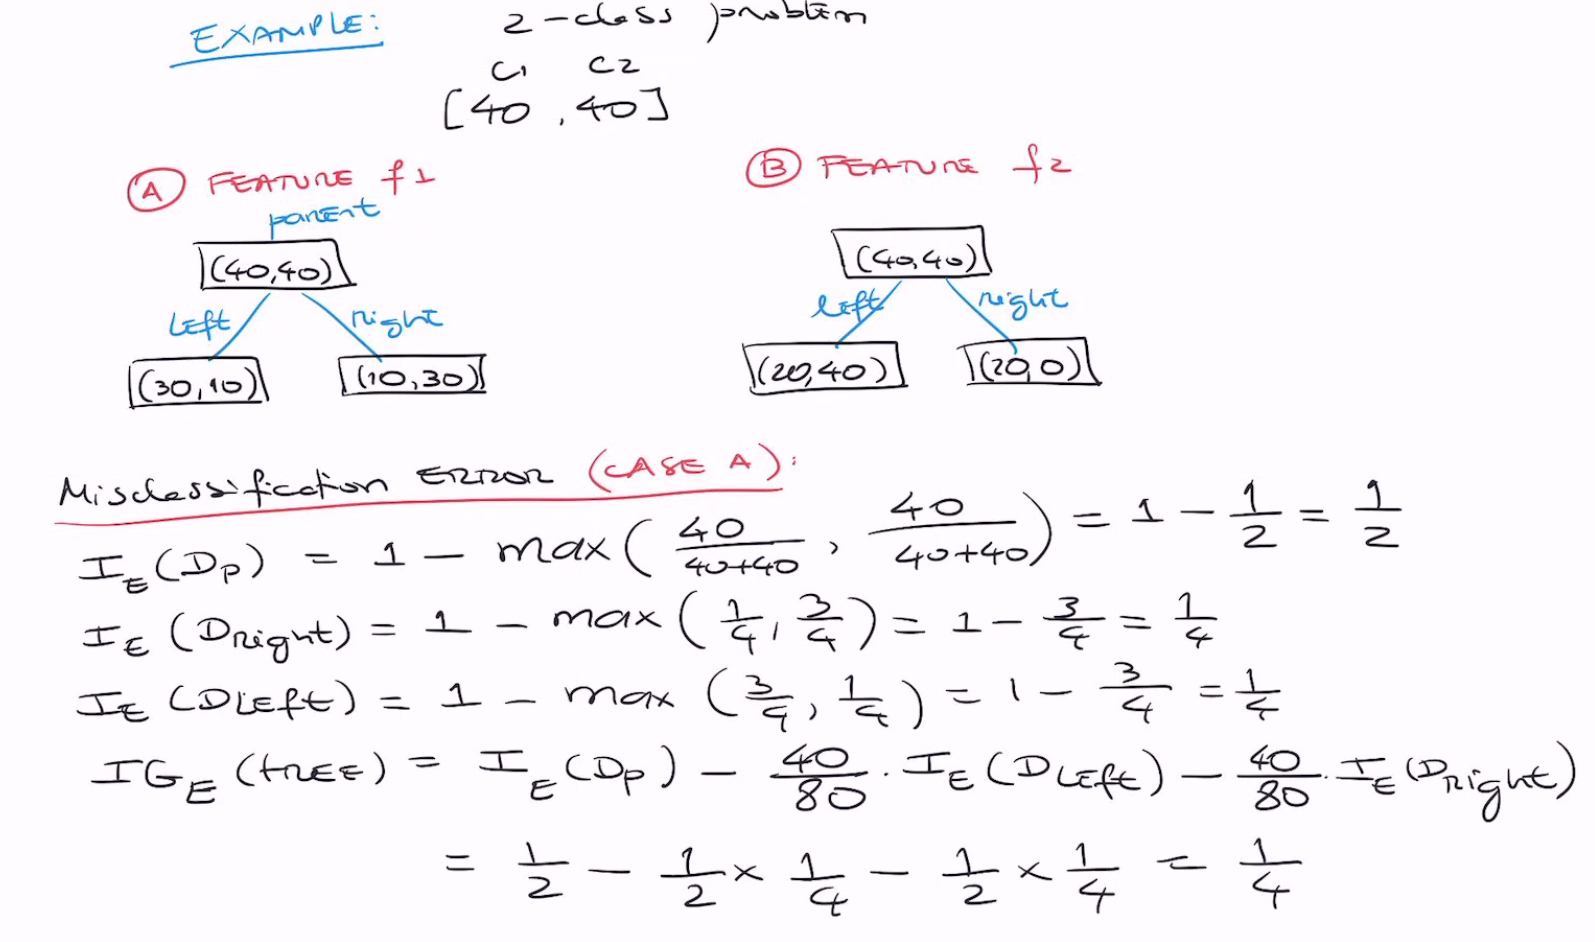 EXAMPLE: 2-class problem
C1 C2
[40, 40]
(A) FEATURE f1
(B) FEATURE f2
parent
(40,40)
(40,40)
Left right
left right
(30,10) (10,30)
(20,40) (20,0)
Misclassification ERROR (CASE A):
I_E(Dp) = 1 - max(40/(40+40), 40/(40+40)) = 1 - 1/2 = 1/2
I_E(Dright) = 1 - max(1/4, 3/4) = 1 - 3/4 = 1/4
I_E(DLeft) = 1 - max(3/4, 1/4) = 1 - 3/4 = 1/4
IG_E(tree) = I_E(Dp) - 40/80 · I_E(DLeft) - 40/80 · I_E(DRight)
= 1/2 - 1/2 × 1/4 - 1/2 × 1/4 = 1/4